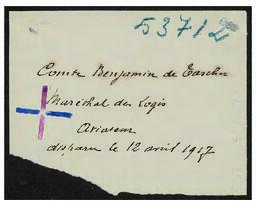 53712
Comte Benjamin de Taschu
Maréchal des Logis
Aviateur
disparu le 12 avril 1917